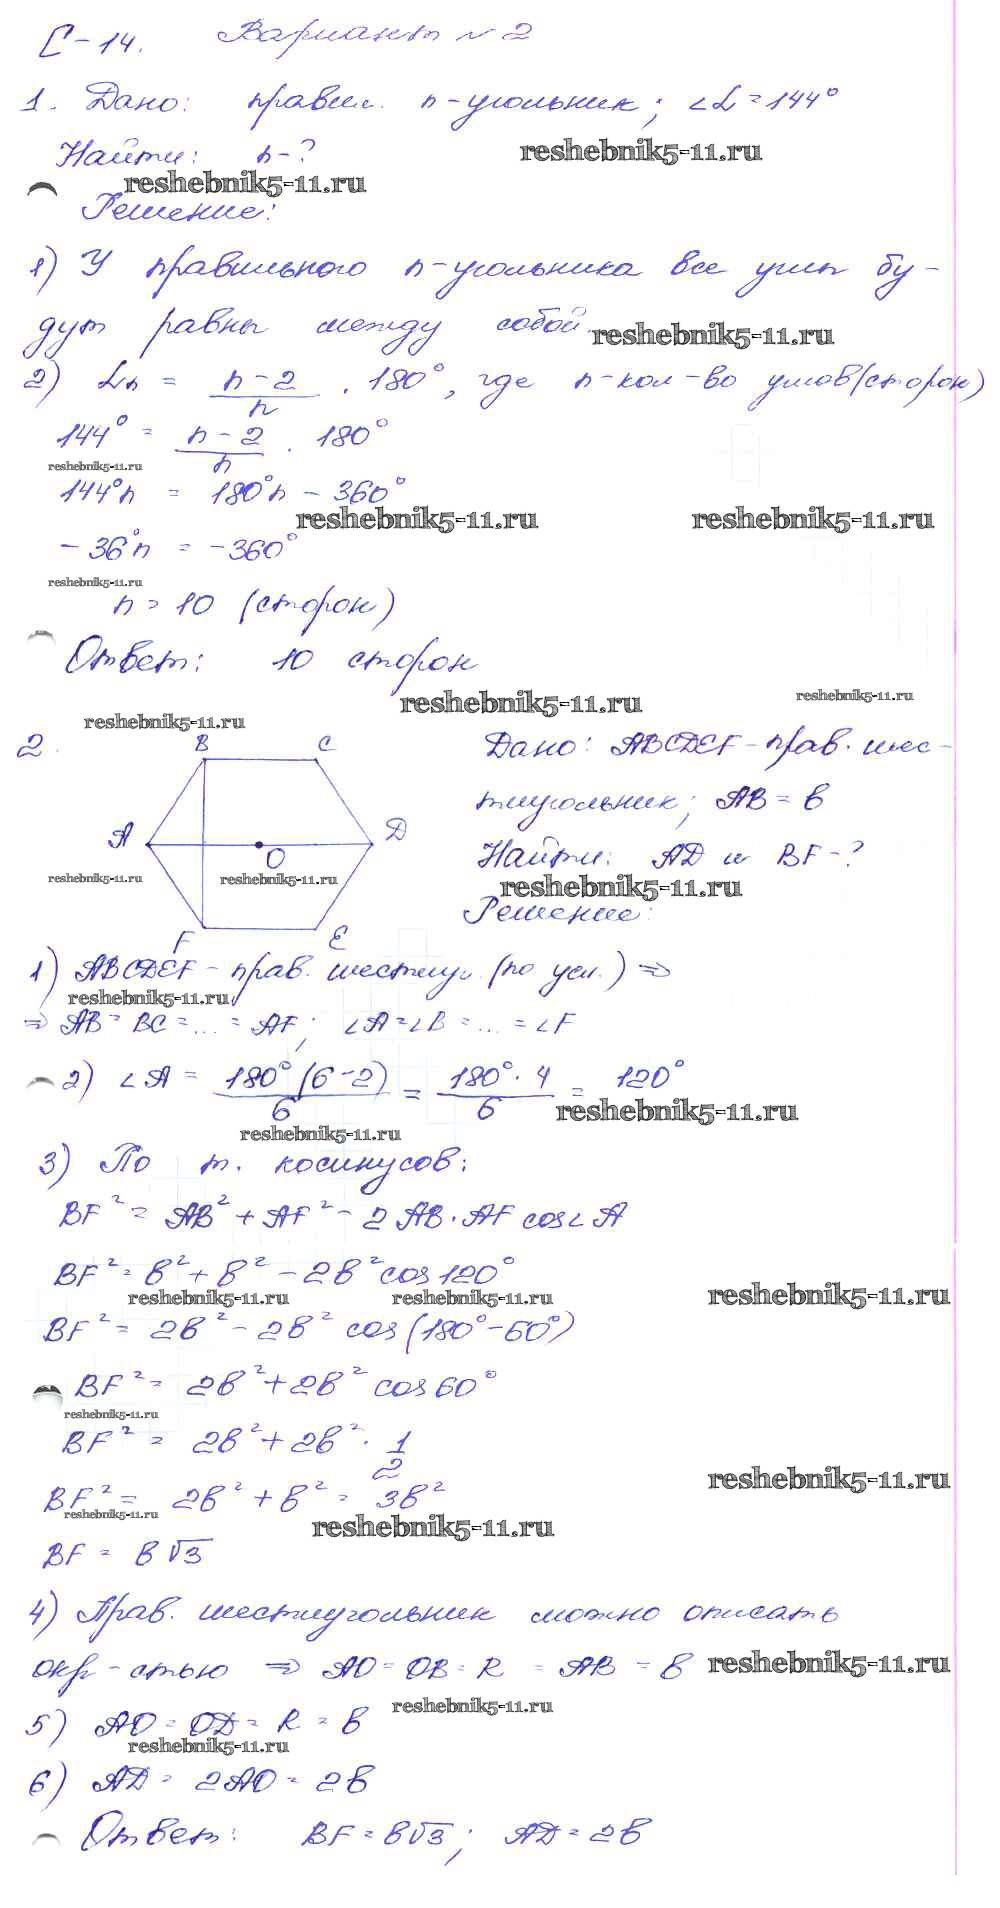 С-14. Вариант №2
1. Дано: правил. n-угольник; ∠α=144°
Найти: n-?
reshebnik5-11.ru
reshebnik5-11.ru
Решение:
1) У правильного n-угольника все углы бу-
дут равны между собой.
reshebnik5-11.ru
2) αn = (n-2)/n · 180°, где n-кол-во углов(сторон)
144° = (n-2)/n · 180°
reshebnik5-11.ru
144°n = 180°n - 360°
reshebnik5-11.ru
reshebnik5-11.ru
-36°n = -360°
reshebnik5-11.ru
n = 10 (сторон)
Ответ: 10 сторон
reshebnik5-11.ru
reshebnik5-11.ru
reshebnik5-11.ru
2.
B C
A D
O
F E
reshebnik5-11.ru
reshebnik5-11.ru
Дано: ABCDEF - прав. шес-
тиугольник; AB = в
Найти: AD и BF-?
reshebnik5-11.ru
Решение:
1) ABCDEF - прав. шестиуг. (по усл.) ⇒
reshebnik5-11.ru
⇒ AB = BC = ... = AF; ∠A = ∠B = ... = ∠F
2) ∠A = 180°(6-2)/6 = 180°·4/6 = 120°
reshebnik5-11.ru
reshebnik5-11.ru
3) По т. косинусов:
BF² = AB² + AF² - 2AB·AF cos∠A
BF² = в² + в² - 2в² cos120°
reshebnik5-11.ru
reshebnik5-11.ru
reshebnik5-11.ru
BF² = 2в² - 2в² cos(180°-60°)
BF² = 2в² + 2в² cos60°
reshebnik5-11.ru
BF² = 2в² + 2в² · 1/2
reshebnik5-11.ru
BF² = 2в² + в² = 3в²
reshebnik5-11.ru
reshebnik5-11.ru
BF = в√3
4) Прав. шестиугольник можно описать
окр-стью ⇒ AO = OB = R = AB = в
reshebnik5-11.ru
reshebnik5-11.ru
5) AO = OD = R = в
reshebnik5-11.ru
6) AD = 2AO = 2в
Ответ: BF = в√3; AD = 2в